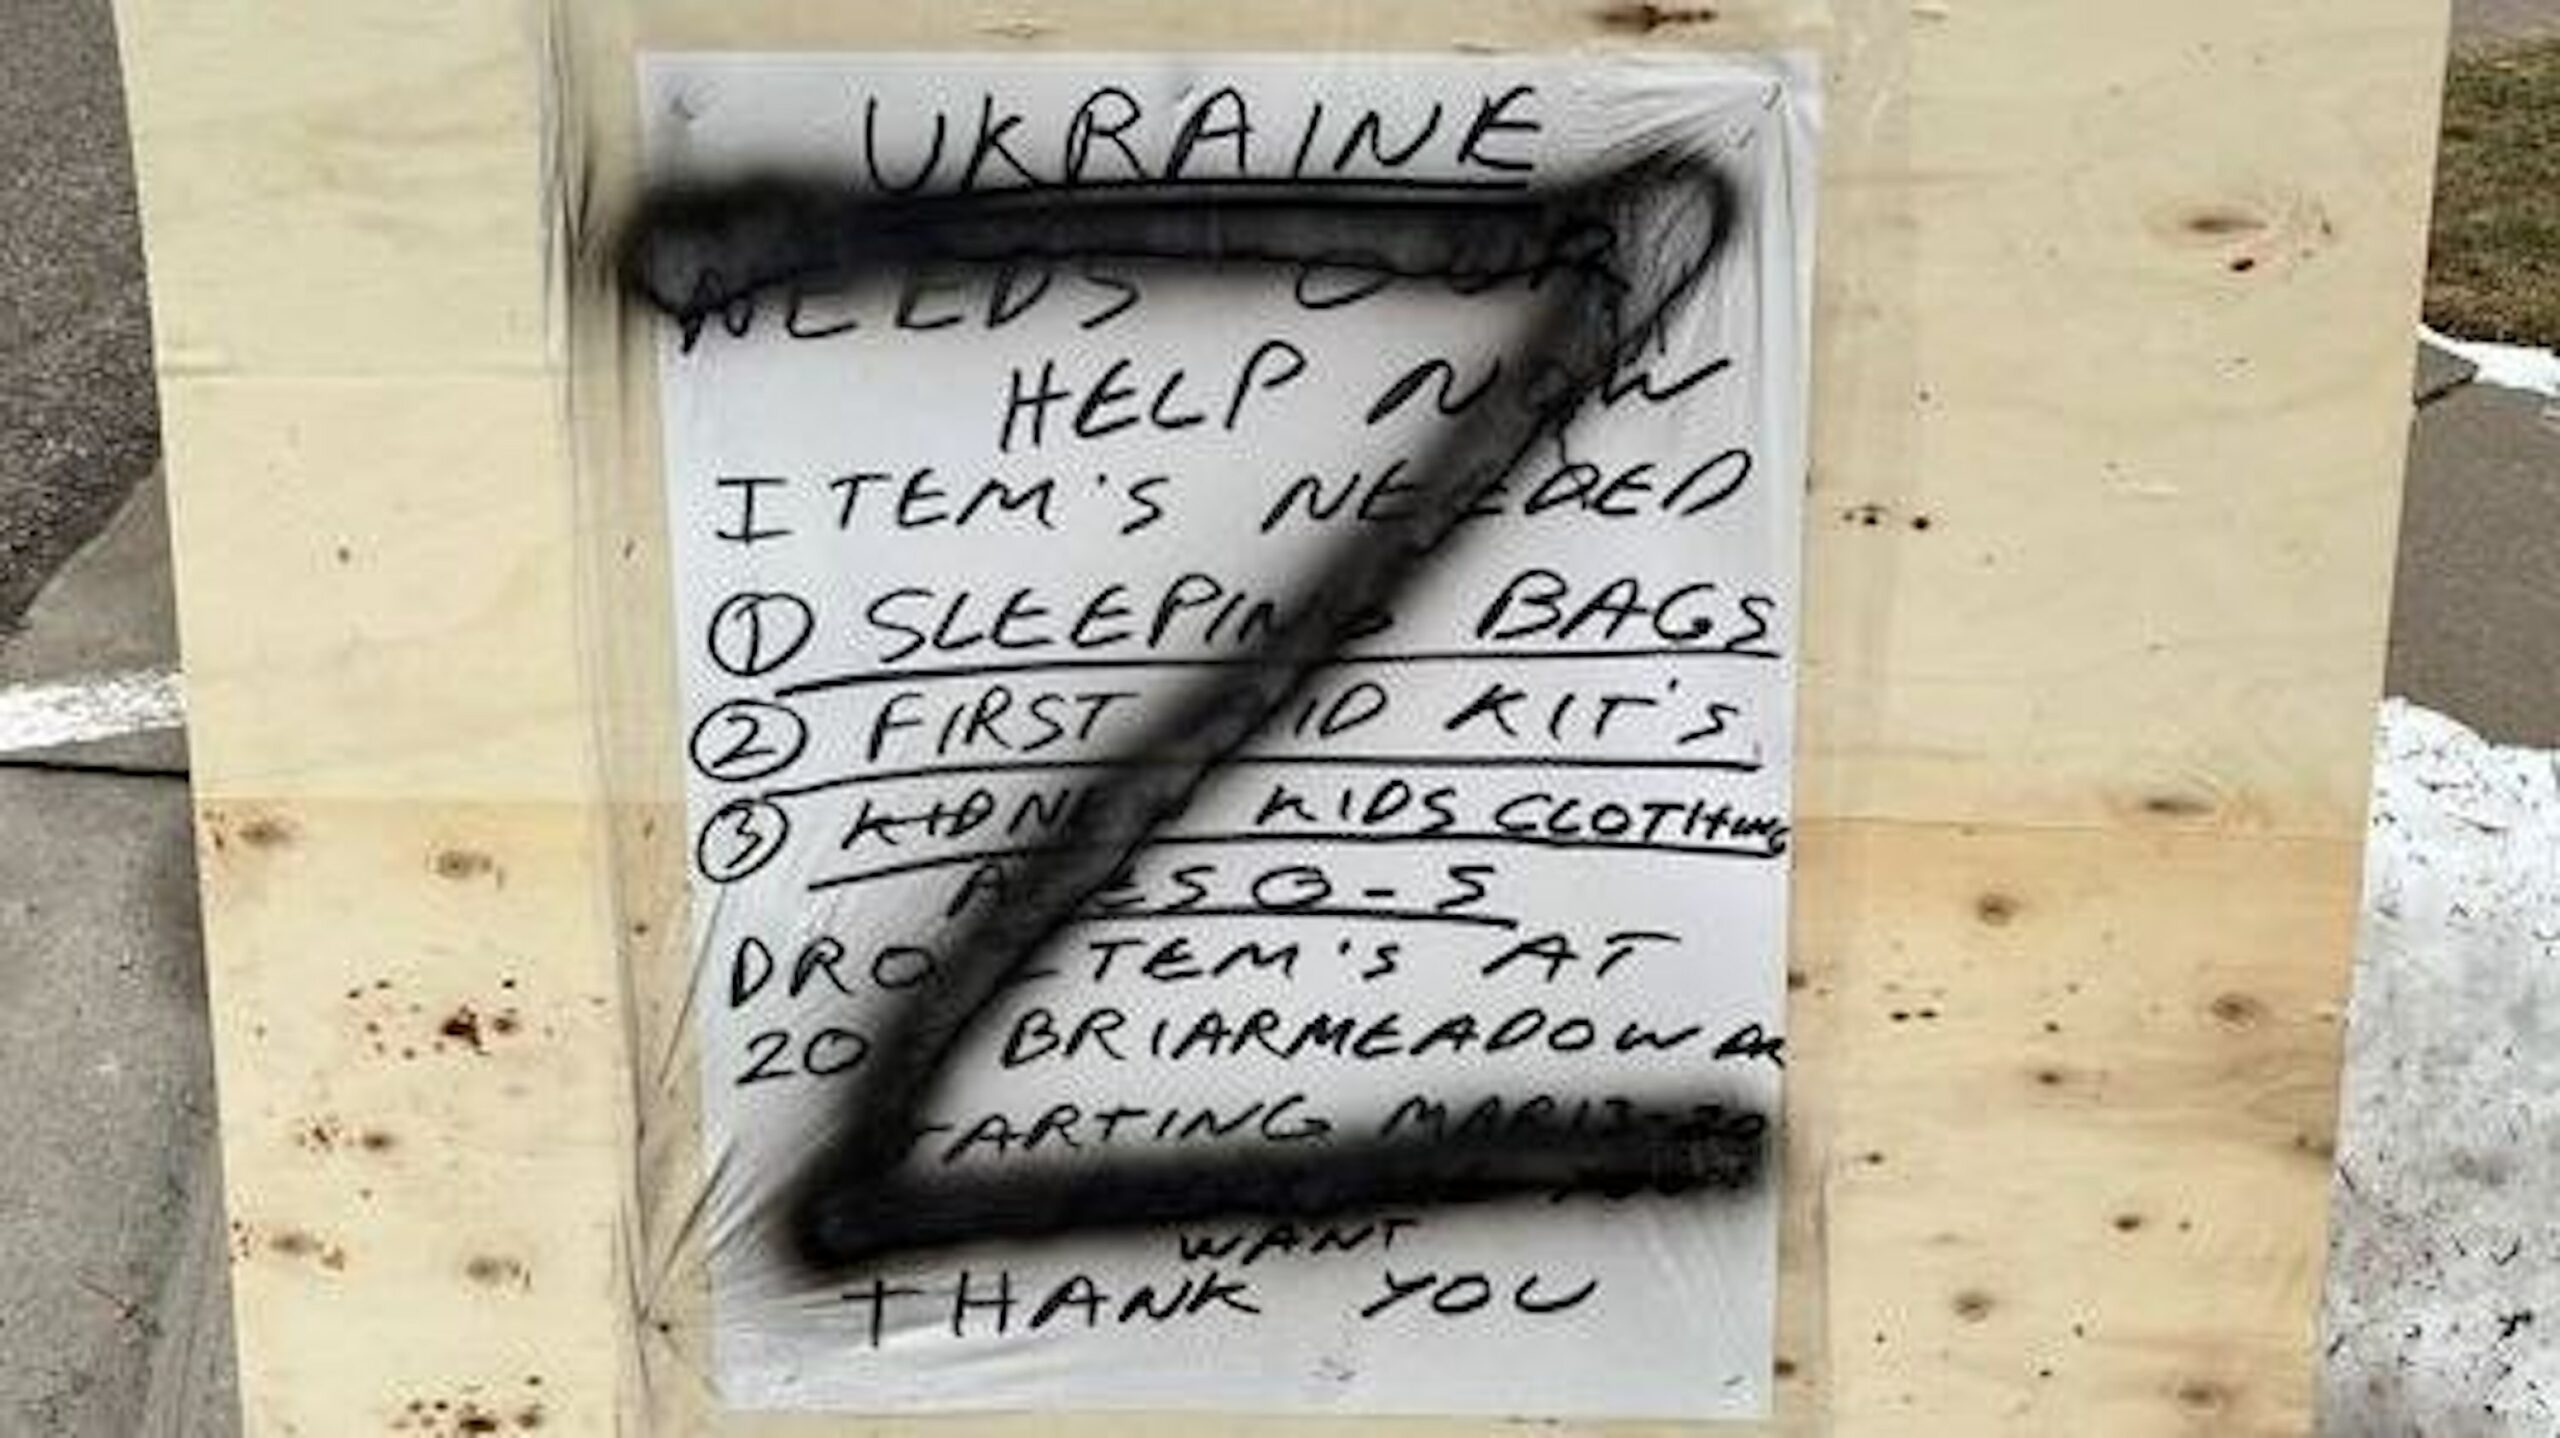 UKRAINE
NEEDS OUR
HELP NOW
ITEM'S NEEDED
① SLEEPING BAGS
② FIRST AID KIT'S
③ KIDS CLOTHING
AGES 0-5
DROP ITEM'S AT
BRIARMEADOW DR
STARTING MAR
WANT
THANK YOU
Z